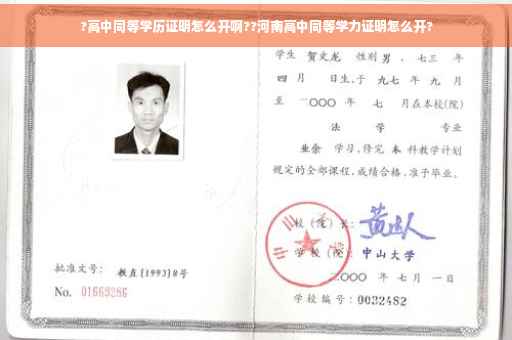 ?高中同等学历证明怎么开啊??河南高中同等学力证明怎么开?
学生 贺文龙 性别 男 、七三 年
四 月 日生,于 九七 年 九 月
至 二〇〇〇 年 七 月在本校(院)
法 学 专业
业余 学习,修完 本 科教学计划
规定的全部课程,成绩合格,准予毕业。
校(院)长:
学 校(院): 中山大学
二〇〇〇 年 七 月 一 日
批准文号: 教直[1993]8号
No. 01669286
学校编号: 0032482